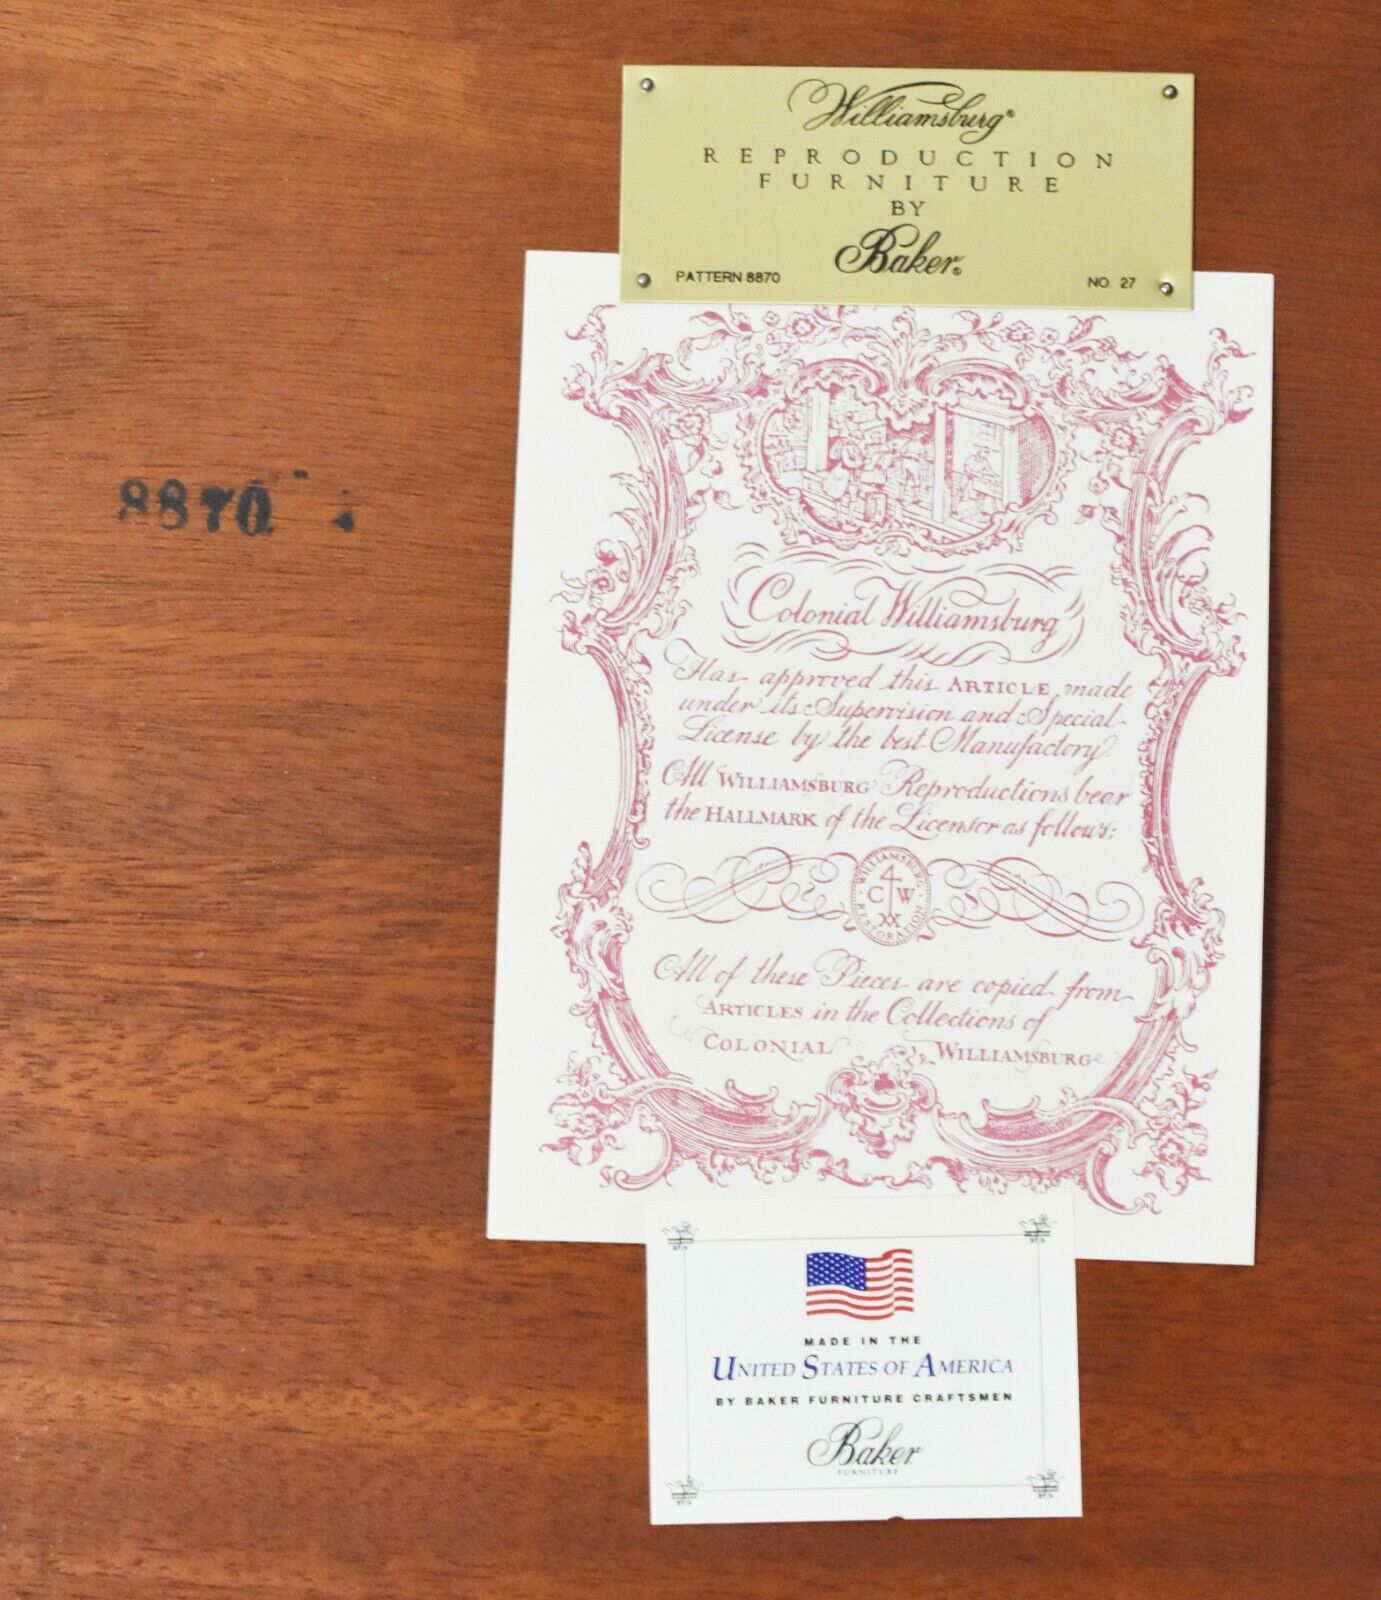 Williamsburg®
REPRODUCTION
FURNITURE
BY
Baker®
PATTERN 8870 NO. 27
8870
Colonial Williamsburg
Has approved this ARTICLE made
under its Supervision and Special
License by the best Manufactory.
All WILLIAMSBURG Reproductions bear
the HALLMARK of the Licensor as follows:
WILLIAMSBURG
CW
RESTORATION
All of these Pieces are copied from
ARTICLES in the Collections of
COLONIAL WILLIAMSBURG
MADE IN THE
UNITED STATES OF AMERICA
BY BAKER FURNITURE CRAFTSMEN
Baker
FURNITURE